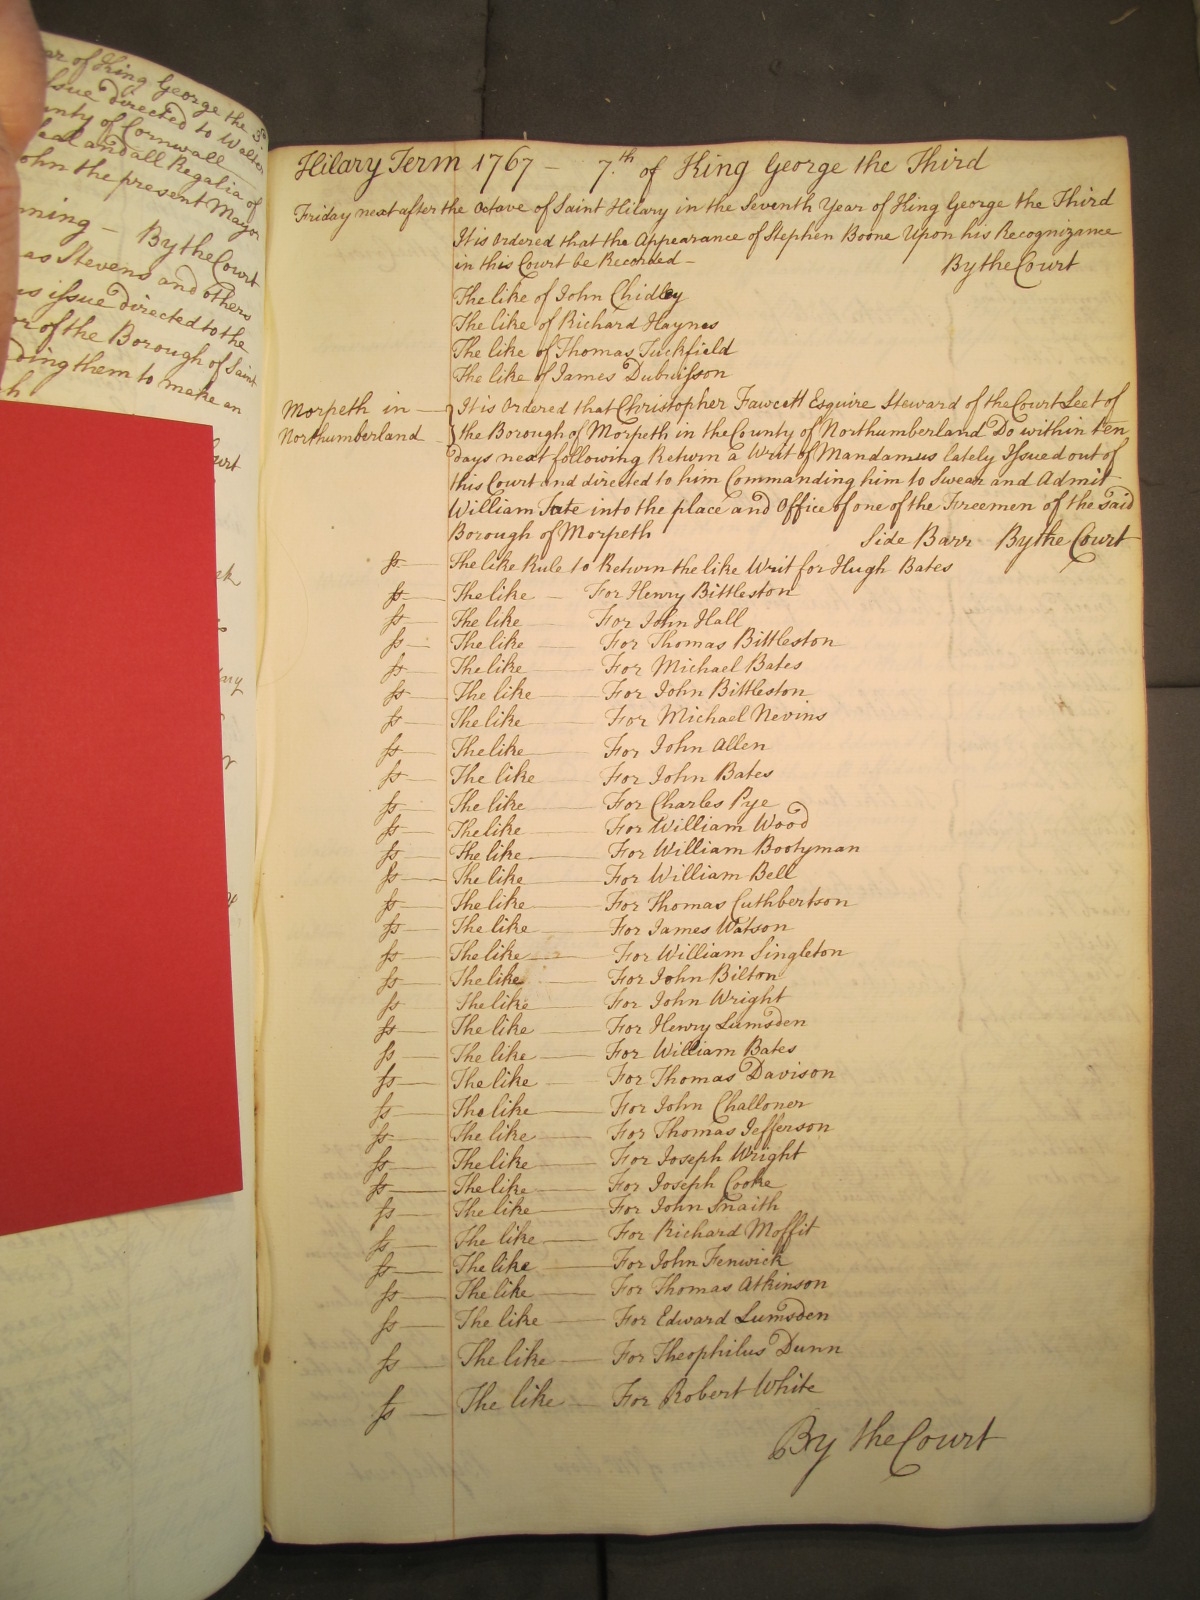 ar of King George the 3d
Issue directed to Walter
unty of Cornwall
Seal and all Regalia of
John the present Mayor
nning — By the Court
as Stevens and others
us issue directed to the
or of the Borough of Saint
ding them to make an
h
urt
ek
Hilary Term 1767 — 7.th of King George the Third
Friday next after the Octave of Saint Hilary in the Seventh Year of King George the Third
It is Ordered that the Appearance of Stephen Boone Upon his Recognizance
in this Court be Recorded — By the Court
The like of John Chidley
The like of Richard Haynes
The like of Thomas Tuckfield
The like of James Dubuisson
Morpeth in — It is Ordered that Christopher Fawcett Esquire Steward of the Court Leet of
Northumberland the Borough of Morpeth in the County of Northumberland Do within Ten
days next following Return a Writ of Mandamus lately Issued out of
this Court and directed to him Commanding him to Swear and Admit
William Tate into the place and Office of one of the Freemen of the said
Borough of Morpeth Side Barr By the Court
ss — The like Rule to Return the like Writ for Hugh Bates
ss — The like — For Henry Bittleston
ss — The like — For John Hall
ss — The like — For Thomas Bittleston
ss — The like — For Michael Bates
ss — The like — For John Bittleston
ss — The like — For Michael Nevins
ss — The like — For John Allen
ss — The like — For John Bates
ss — The like — For Charles Pye
ss — The like — For William Wood
ss — The like — For William Bootyman
ss — The like — For William Bell
ss — The like — For Thomas Cuthbertson
ss — The like — For James Watson
ss — The like — For William Singleton
ss — The like — For John Bilton
ss — The like — For John Wright
ss — The like — For Henry Lumsden
ss — The like — For William Bates
ss — The like — For Thomas Davison
ss — The like — For John Challoner
ss — The like — For Thomas Jefferson
ss — The like — For Joseph Wright
ss — The like — For Joseph Cooke
ss — The like — For John Snaith
ss — The like — For Richard Moffit
ss — The like — For John Fenwick
ss — The like — For Thomas Atkinson
ss — The like — For Edward Lumsden
ss — The like — For Theophilus Dunn
ss — The like — For Robert White
By the Court